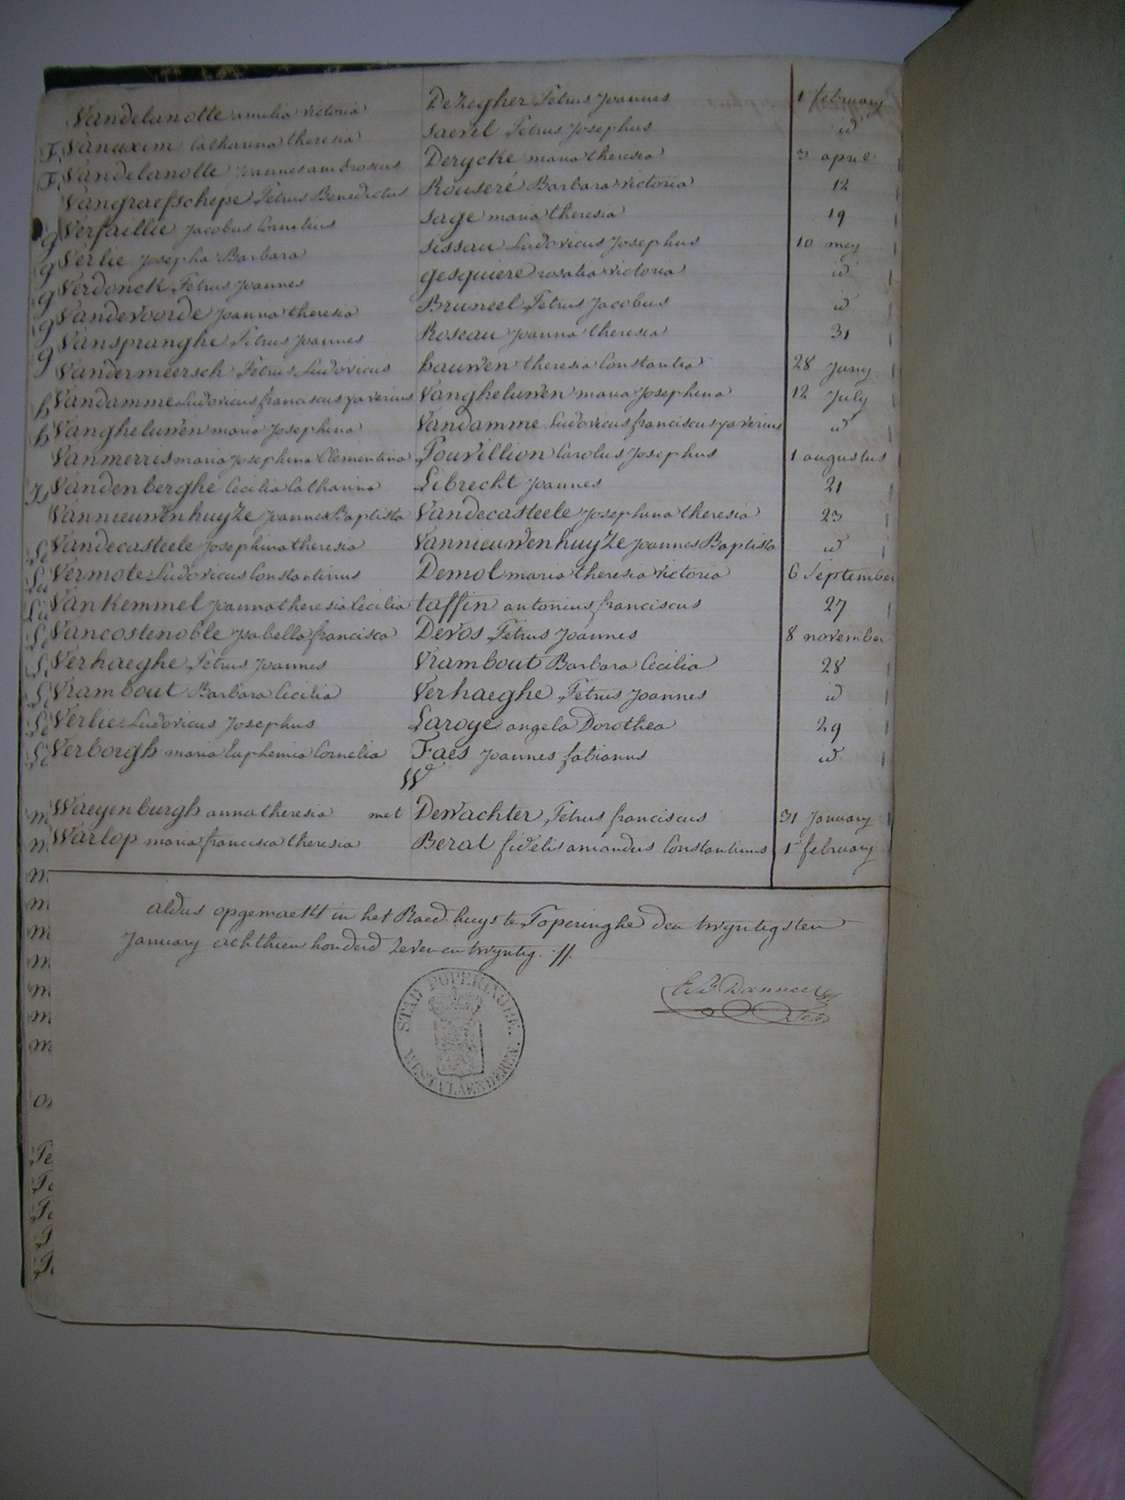 Vandelanotte amelia victoria Dezegher Petrus Joannes 1 february
Vanuxem Catharina theresia Petrus Josephus id
Vandelanotte Joannes ambrosius Derycke maria theresia 3 april
Vangraefschepe Petrus Benedictus Rouseré Barbara victoria 12
Verfaillie Jacobus Cornelius sage maria theresia 19
Verlie Josepha Barbara sissau Ludovicus Josephus 10 mey
Verdonck Petrus Joannes gesquiere rosalia victoria id
Vandevoorde Joanna theresia Bruneel Petrus Jacobus id
Vanspranghe Petrus Joannes Roseau Joanna theresia 31
Vandermeersch Petrus Ludovicus bauwen theresia Constantia 28 Juny
Vandamme Ludovicus franciscus xaverius Vangheluwen maria Josephina 12 July
Vangheluwen maria Josephina Vandamme Ludovicus franciscus xaverius id
Vanmerris maria Josephina Clementina Pouvillion Carolus Josephus 1 augustus
Vandenberghe Cecilia Catharina Librecht Joannes 21
Vannieuwenhuyze Joannes Baptista Vandecasteele Josephina theresia 23
Vandecasteele Josephina theresia Vannieuwenhuyze Joannes Baptista id
Vermote Ludovicus Constantinus Demol maria theresia victoria 6 September
Vankemmel Joanna theresia Cecilia taffin antonius franciscus 27
Vancostenoble Isabella francisca Devos Petrus Joannes 8 november
Verhaeghe Petrus Joannes Vrambout Barbara Cecilia 28
Vrambout Barbara Cecilia Verhaeghe Petrus Joannes id
Verlie Ludovicus Josephus Laroye angela Dorothea 29
Verborgh maria Euphemia Cornelia Faes Joannes fabianus id
W
Waeyenburgh anna theresia met Dewachter Petrus franciscus 31 January
Warlop maria francisca theresia Berat fidelis amandus Constantinus 1 february
aldus opgemaekt in het Raedhuys te Poperinghe den twyntigsten
January achthien honderd zeven en twyntig
STAD POPERINGHE.
WESTVLAENDEREN.